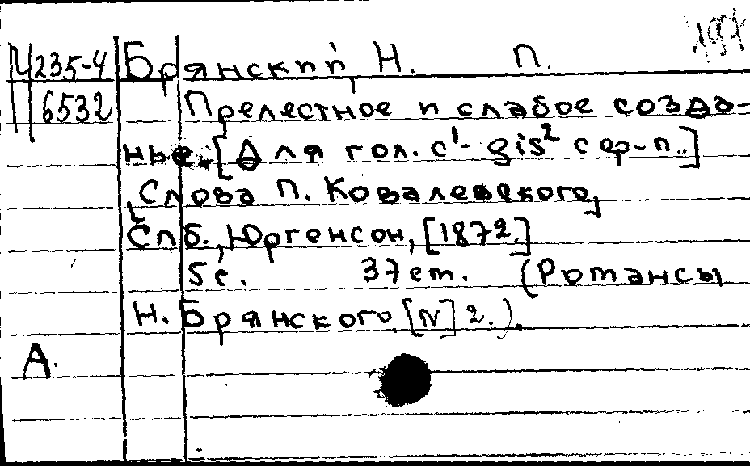 Ц 235-4 Брянский, Н. П.
6532 Прелестное и слабое созда-
нье. [Для гол. c¹- gis² с ф-п..]
[Слова П. Ковалевского]
Спб., Юргенсон, [1872.]
5 с. 37 ст. (Романсы
Н. Брянского [N] 2.).
А.